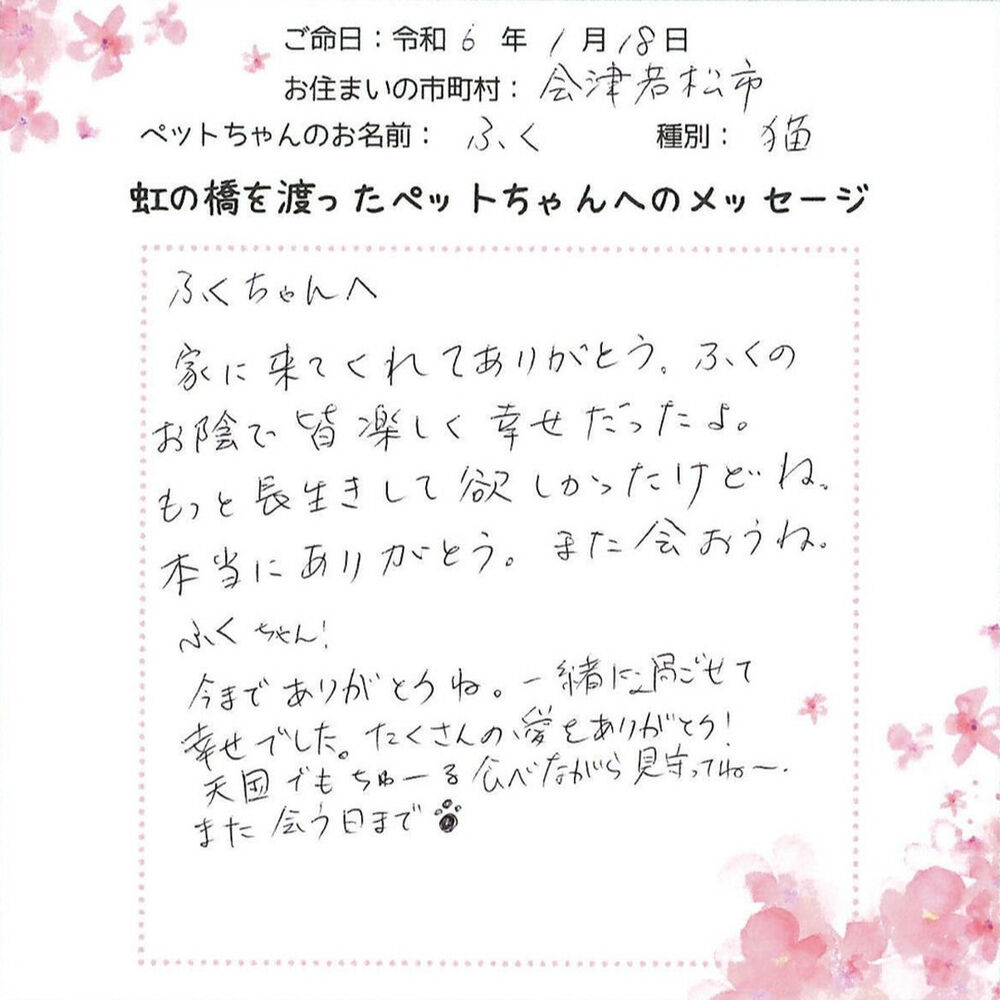 ご命日：令和 6 年 1月18日
お住まいの市町村： 会津若松市
ペットちゃんのお名前： ふく 種別： 猫
虹の橋を渡ったペットちゃんへのメッセージ
ふくちゃんへ
家に来てくれてありがとう。ふくの
お陰で皆楽しく幸せだったよ。
もっと長生きして欲しかったけどね。
本当にありがとう。また会おうね。
ふくちゃん!
今までありがとうね。一緒に過ごせて
幸せでした。たくさんの愛をありがとう!
天国でもちゅーる食べながら見守ってね〜.
また会う日まで